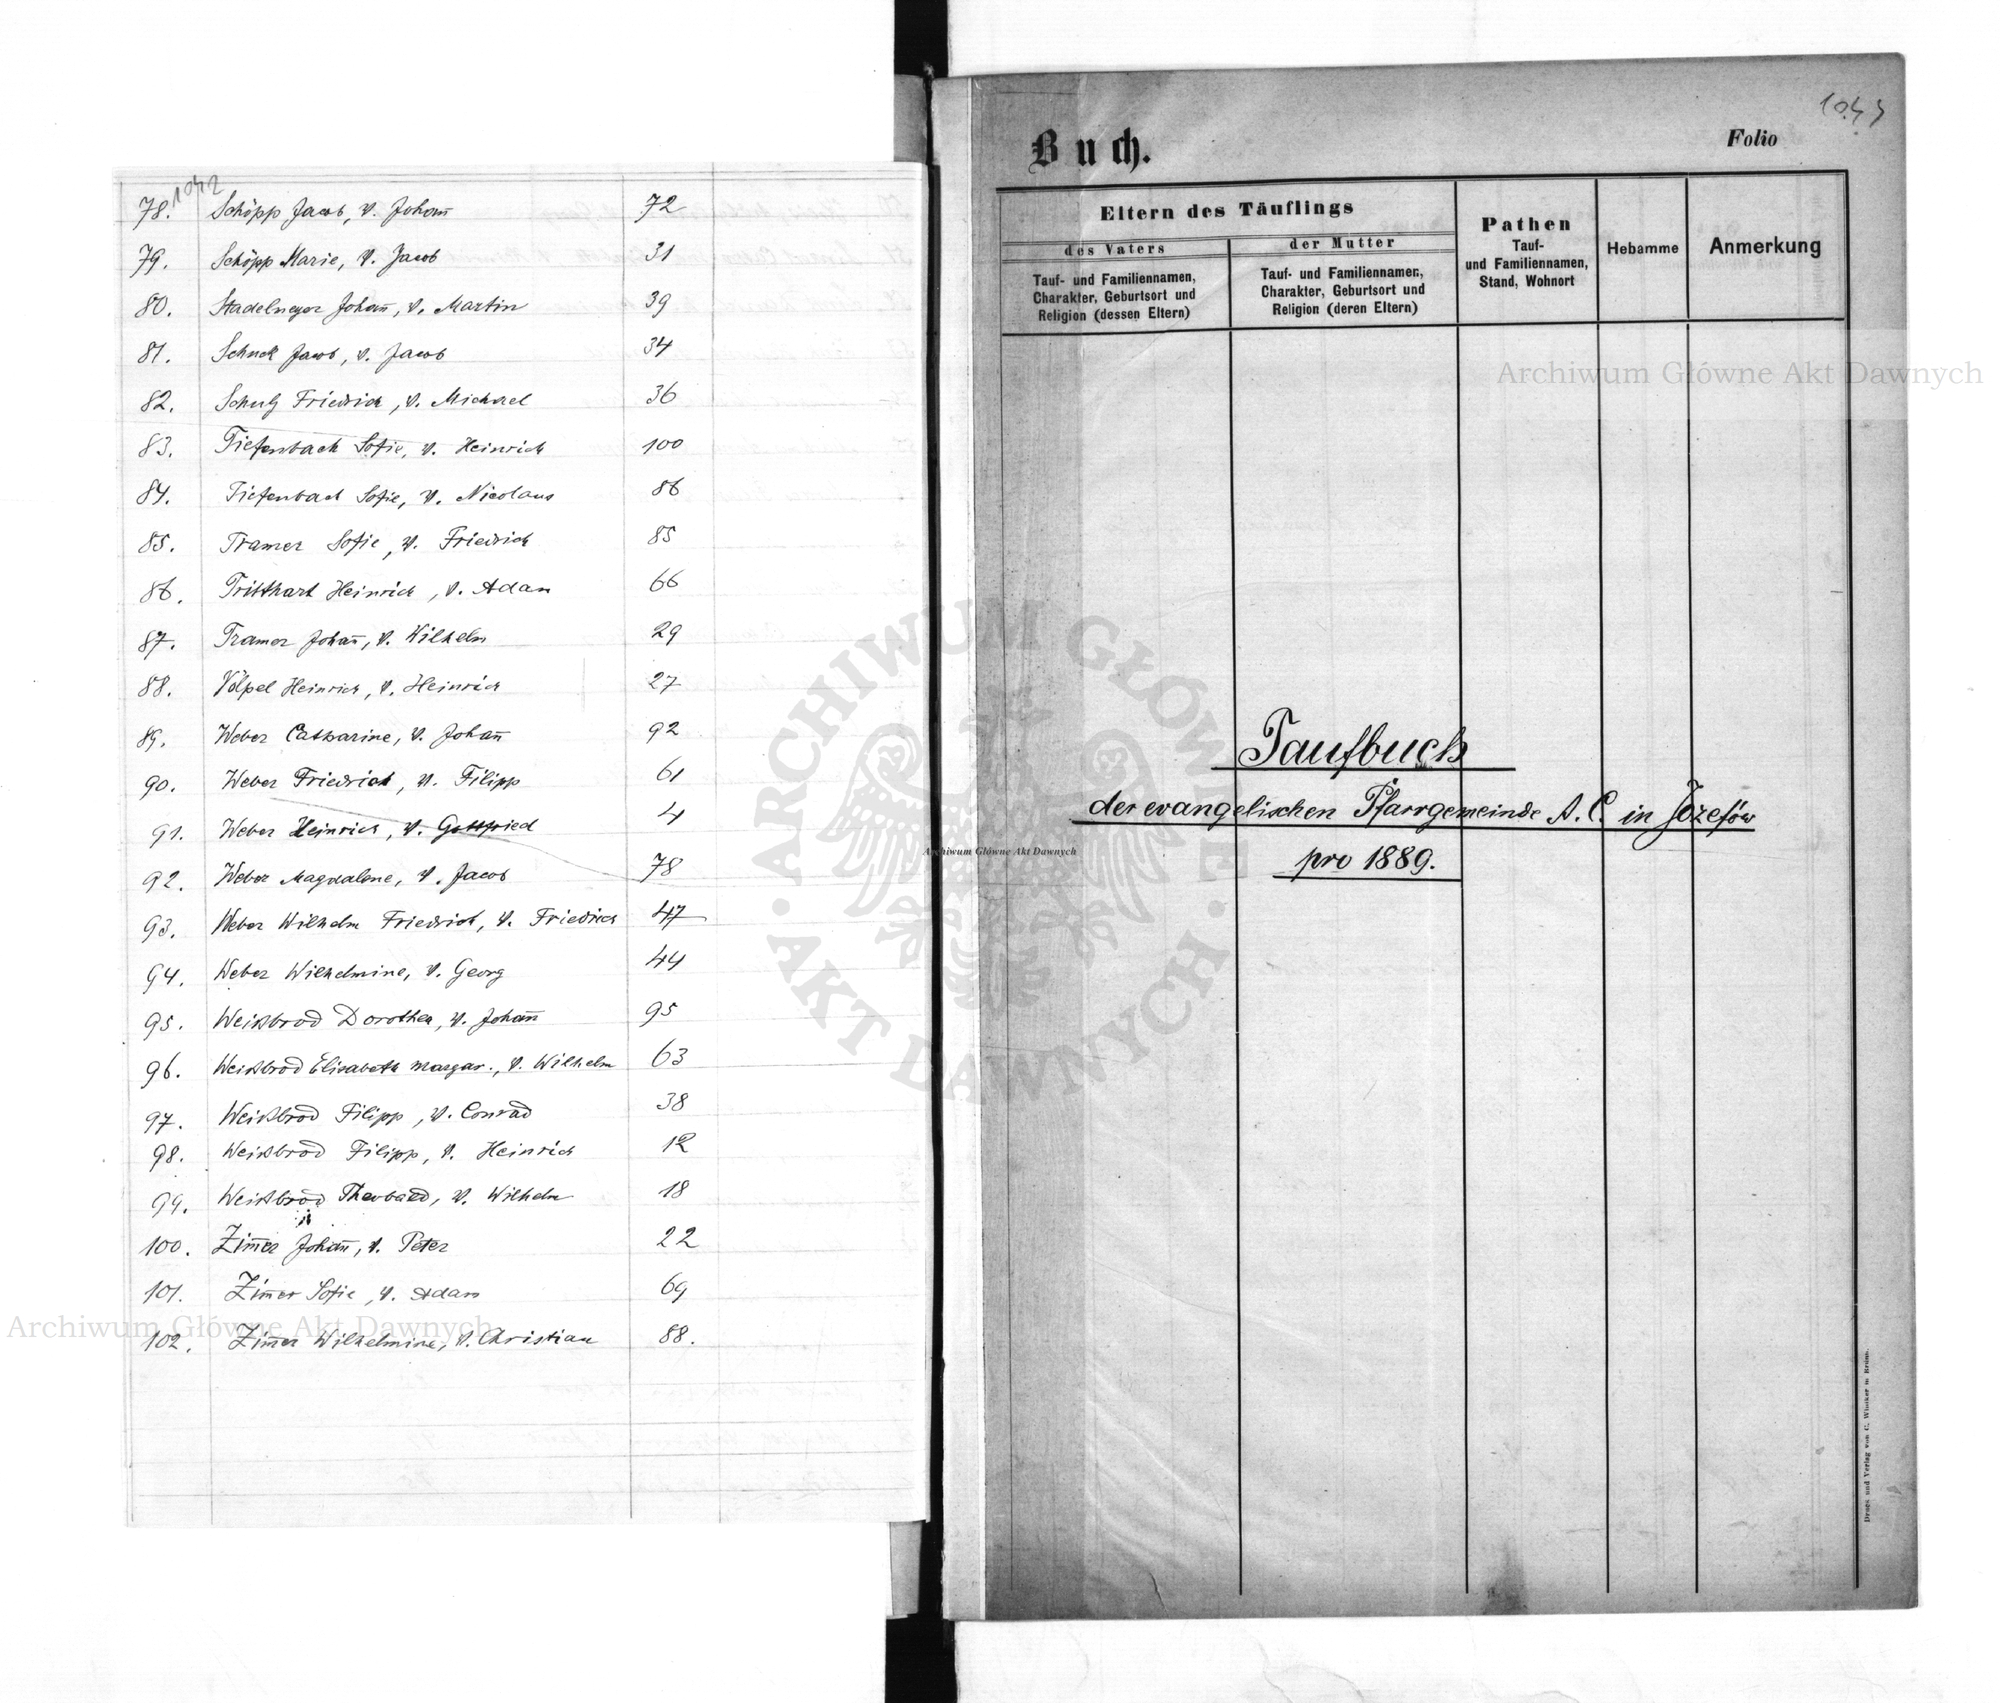 1042
78. Schöpp Jacob, v. Joham̄ 72
79. Schöpp Marie, v. Jacob 31
80. Stadelmeyer Johan̄, v. Martin 39
81. Schuck Jacob, v. Jacob 34
82. Schulz Friedrich, v. Michael 36
83. Tiefenbach Sofie, v. Heinrich 100
84. Tiefenbach Sofie, v. Nicolaus 86
85. Tramer Sofie, v. Friedrich 85
86. Tritthart Heinrich, v. Adam 66
87. Tramer Johan̄, v. Wilhelm 29
88. Völpel Heinrich, v. Heinrich 27
89. Weber Catharine, v. Johan̄ 92
90. Weber Friedrich, v. Filipp 61
91. Weber Heinrich, v. Gottfried 4
92. Weber Magdalene, v. Jacob 78
93. Weber Wilhelm Friedrich, v. Friedrich 47
94. Weber Wilhelmine, v. Georg 44
95. Weißbrod Dorothea, v. Johan̄ 95
96. Weißbrod Elisabeth Margar., v. Wilhelm 63
97. Weißbrod Filipp, v. Conrad 38
98. Weißbrod Filipp, v. Heinrich 12
99. Weißbrod Theobald, v. Wilhelm 18
100. Zim̄er Johan̄, v. Peter 22
101. Zim̄er Sofie, v. Adam 69
102. Zim̄er Wilhelmine, v. Christian 88.
Buch.
Folio
Eltern des Täuflings
des Vaters
der Mutter
Tauf- und Familiennamen,
Charakter, Geburtsort und
Religion (dessen Eltern)
Tauf- und Familiennamen,
Charakter, Geburtsort und
Religion (deren Eltern)
Pathen
Tauf-
und Familiennamen,
Stand, Wohnort
Hebamme
Anmerkung
Taufbuch
der evangelischen Pfarrgemeinde A. C. in Józefów
pro 1889.
Druck und Verlag von C. Winiker in Brünn.
Archiwum Główne Akt Dawnych
Archiwum Główne Akt Dawnych
Archiwum Główne Akt Dawnych
ARCHIWUM GŁÓWNE · AKT DAWNYCH ·